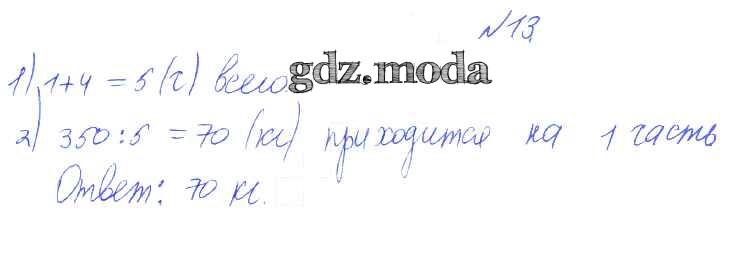 №13
1) 1+4 = 5 (ч) всего gdz.moda
2) 350:5 = 70 (кг) приходится на 1 часть
Ответ: 70 кг.